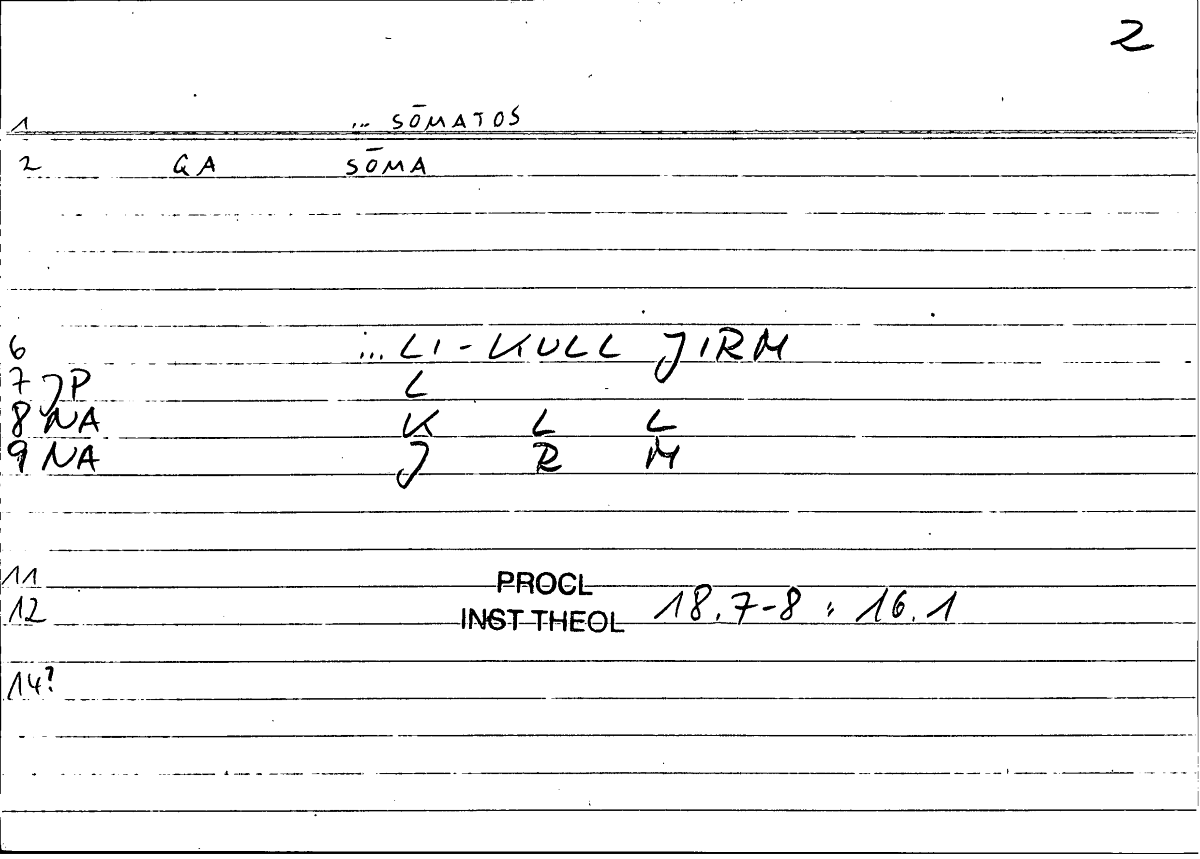 2
1 ... SŌMATOS
2 GA SŌMA
6 ... LI-KULL JIRM
7 JP L
8 NA K L L
9 NA J R M
11 PROCL
12 INST THEOL 18.7-8 : 16.1
14?